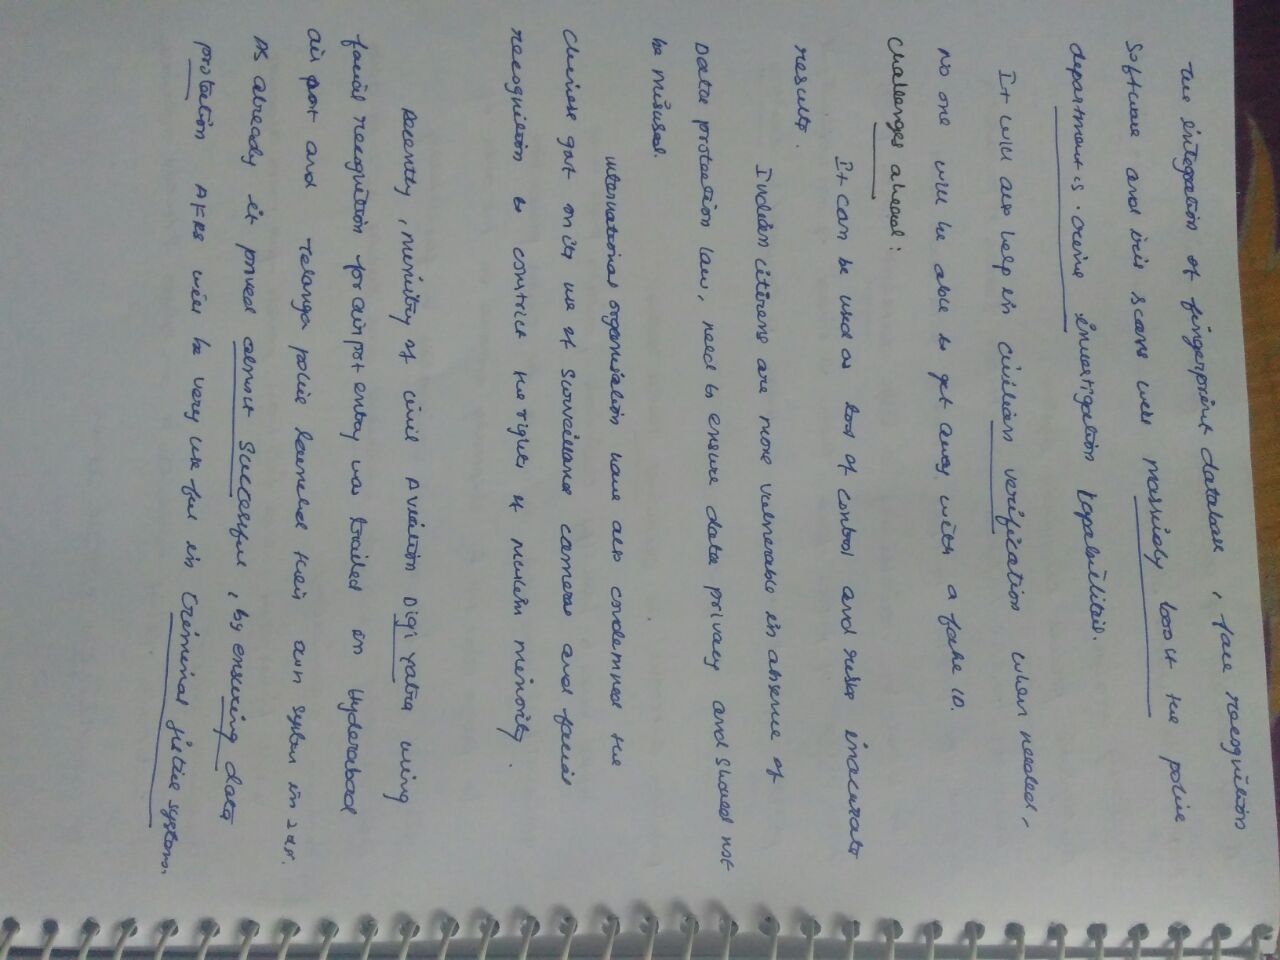 The integration of fingerprint database, face recognition
software and iris scans will massively boost the police
department's crime investigation capabilities.
It will also help in civilian verification when needed,
no one will be able to get away with a fake ID.
Challenges ahead:
It can be used as tool of control and risks inaccurate
results.
Indian citizens are more vulnerable in absence of
Data protection law, need to ensure data privacy and should not
be misused.
International organisation have also condemned the
Chinese govt on its use of surveillance cameras and facial
recognition to constrict the rights of muslim minority.
Recently, ministry of civil Aviation Digi Yatra using
facial recognition for airport entry was trailed in Hyderabad
air port and telanga police launched their own system in 2018.
As already it proved almost successful, by ensuring data
protection AFRS will be very useful in Criminal justice system.